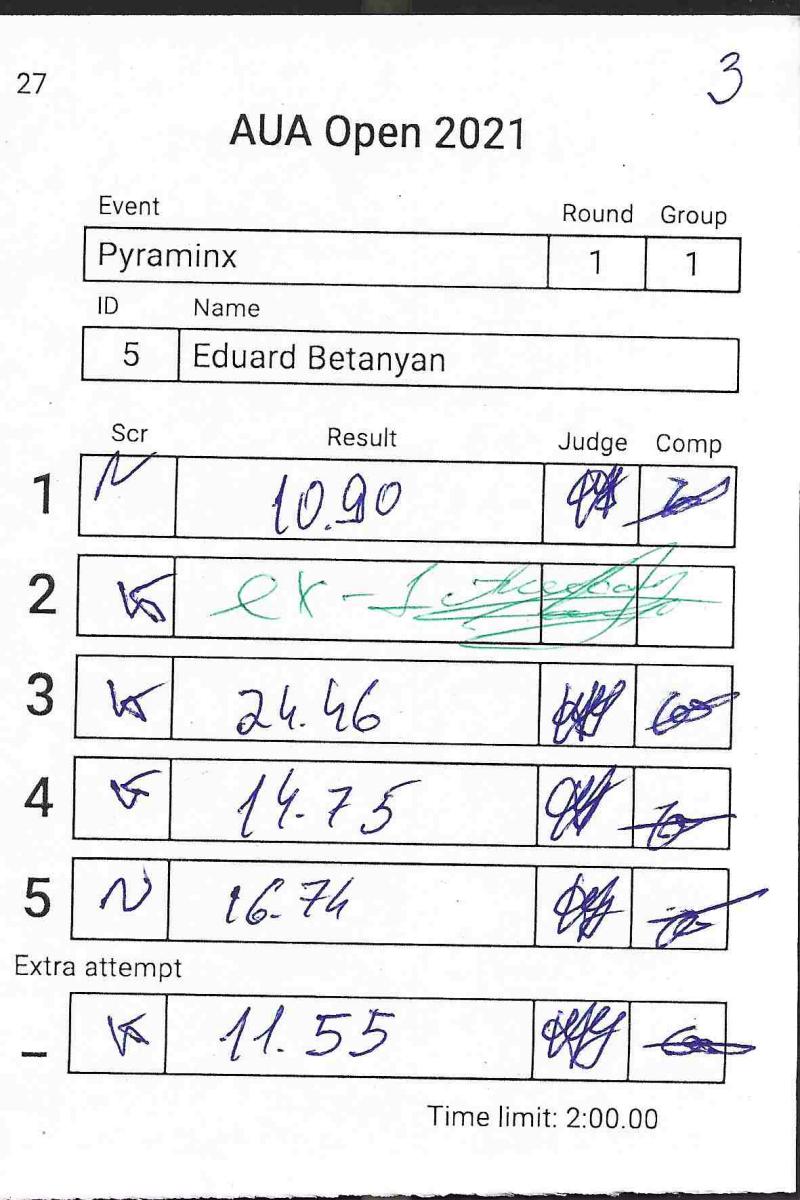 27
3
AUA Open 2021
Event Round Group
Pyraminx 1 1
ID Name
5 Eduard Betanyan
Scr Result Judge Comp
1 10.90
2 ex-1
3 24.46
4 14.75
5 16.74
Extra attempt
_ 11.55
Time limit: 2:00.00